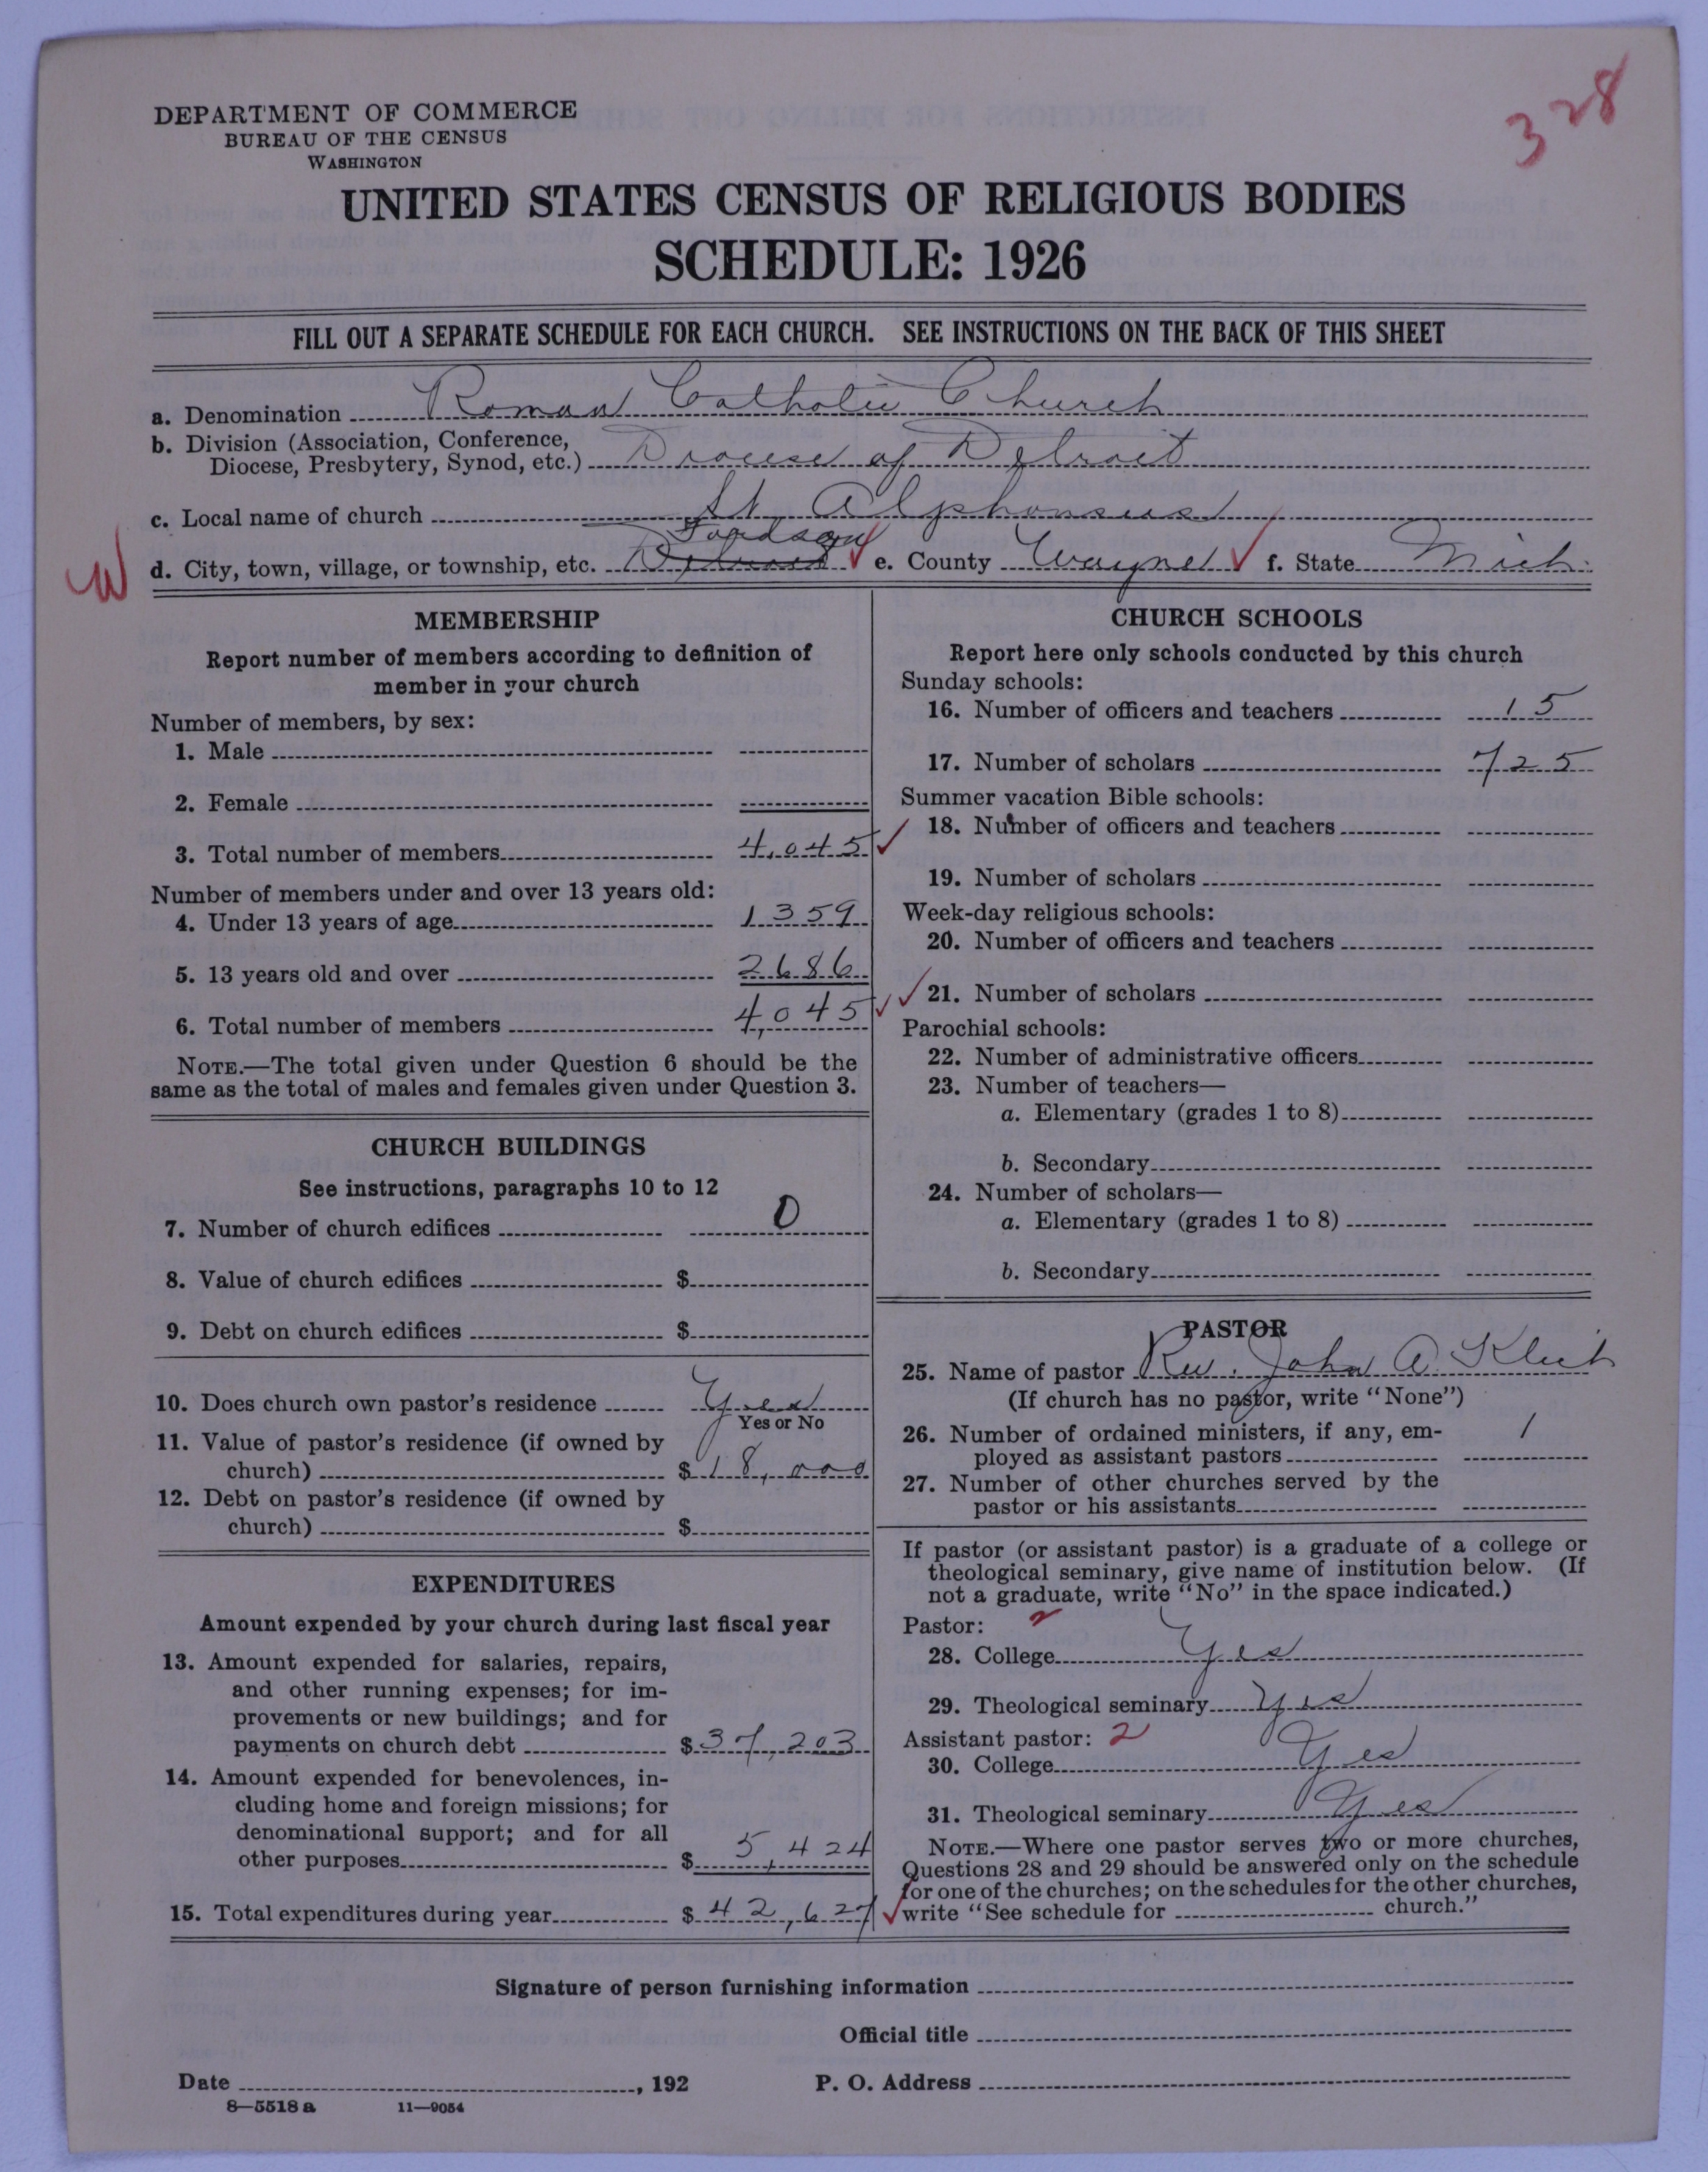 328
DEPARTMENT OF COMMERCE
BUREAU OF THE CENSUS
WASHINGTON
UNITED STATES CENSUS OF RELIGIOUS BODIES
SCHEDULE: 1926
FILL OUT A SEPARATE SCHEDULE FOR EACH CHURCH. SEE INSTRUCTIONS ON THE BACK OF THIS SHEET
a. Denomination Roman Catholic Church
b. Division (Association, Conference,
Diocese, Presbytery, Synod, etc.) Diocese of Detroit
c. Local name of church St Alphonsus
Fordson
W d. City, town, village, or township, etc. Detroit e. County Wayne f. State Mich.
MEMBERSHIP
Report number of members according to definition of
member in your church
Number of members, by sex:
1. Male
2. Female
3. Total number of members 4,045
Number of members under and over 13 years old:
4. Under 13 years of age 1359
5. 13 years old and over 2686
6. Total number of members 4,045
NOTE.—The total given under Question 6 should be the
same as the total of males and females given under Question 3.
CHURCH BUILDINGS
See instructions, paragraphs 10 to 12
7. Number of church edifices 0
8. Value of church edifices $
9. Debt on church edifices $
10. Does church own pastor's residence Yes
Yes or No
11. Value of pastor's residence (if owned by
church) $18,000
12. Debt on pastor's residence (if owned by
church) $
EXPENDITURES
Amount expended by your church during last fiscal year
13. Amount expended for salaries, repairs,
and other running expenses; for im-
provements or new buildings; and for
payments on church debt $37,203
14. Amount expended for benevolences, in-
cluding home and foreign missions; for
denominational support; and for all
other purposes $5,424
15. Total expenditures during year $42,627
CHURCH SCHOOLS
Report here only schools conducted by this church
Sunday schools:
16. Number of officers and teachers 15
17. Number of scholars 725
Summer vacation Bible schools:
18. Number of officers and teachers
19. Number of scholars
Week-day religious schools:
20. Number of officers and teachers
21. Number of scholars
Parochial schools:
22. Number of administrative officers
23. Number of teachers—
a. Elementary (grades 1 to 8)
b. Secondary
24. Number of scholars—
a. Elementary (grades 1 to 8)
b. Secondary
PASTOR
25. Name of pastor Rev. John A.
(If church has no pastor, write "None")
26. Number of ordained ministers, if any, em-
ployed as assistant pastors 1
27. Number of other churches served by the
pastor or his assistants
If pastor (or assistant pastor) is a graduate of a college or
theological seminary, give name of institution below. (If
not a graduate, write "No" in the space indicated.)
Pastor: 2
28. College Yes
29. Theological seminary Yes
Assistant pastor: 2
30. College Yes
31. Theological seminary Yes
NOTE.—Where one pastor serves two or more churches,
Questions 28 and 29 should be answered only on the schedule
for one of the churches; on the schedules for the other churches,
write "See schedule for church."
Signature of person furnishing information
Official title
Date , 192 P. O. Address
8—5518a 11—9054